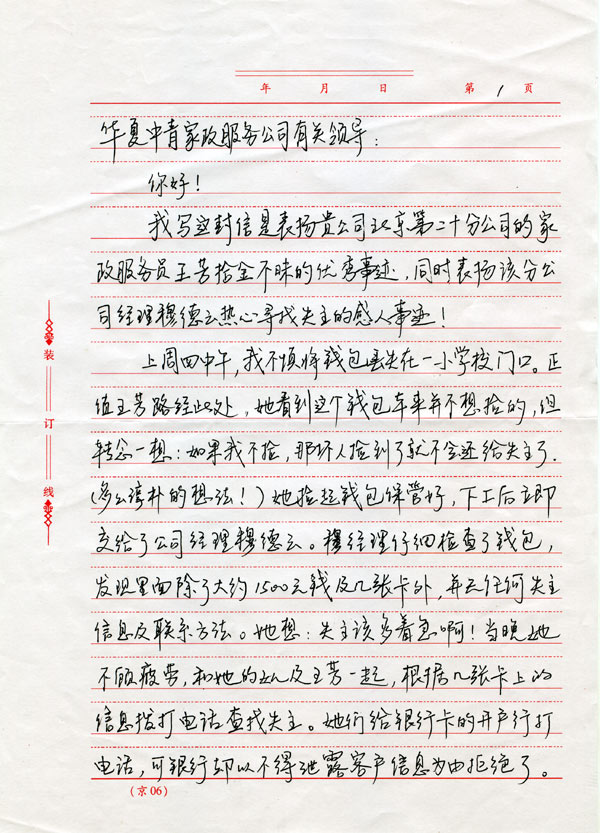 年 月 日 第 1 页
华夏中青家政服务公司有关领导:
你好!
我写这封信是表扬贵公司北京第二十分公司的家
政服务员王芳拾金不昧的优秀事迹,同时表扬该分公
司经理穆德云热心寻找失主的感人事迹!
上周四中午,我不慎将钱包丢失在一小学校门口。正
值王芳路经此处,她看到这个钱包本来并不想拾的,但
转念一想:如果我不捡,那坏人捡到了就不会还给失主了.
(多么淳朴的想法!)她捡起钱包保管好,下工后立即
交给了公司经理穆德云。穆经理仔细检查了钱包,
发现里面除了大约1500元钱及几张卡外,并无任何失主
信息及联系方法。她想:失主该多着急啊!当晚她
不顾疲劳,和她的女儿及王芳一起,根据几张卡上的
信息拨打电话查找失主。她们给银行卡的开户行打
电话,可银行却以不得泄露客户信息为由拒绝了。
装
订
线
(京06)